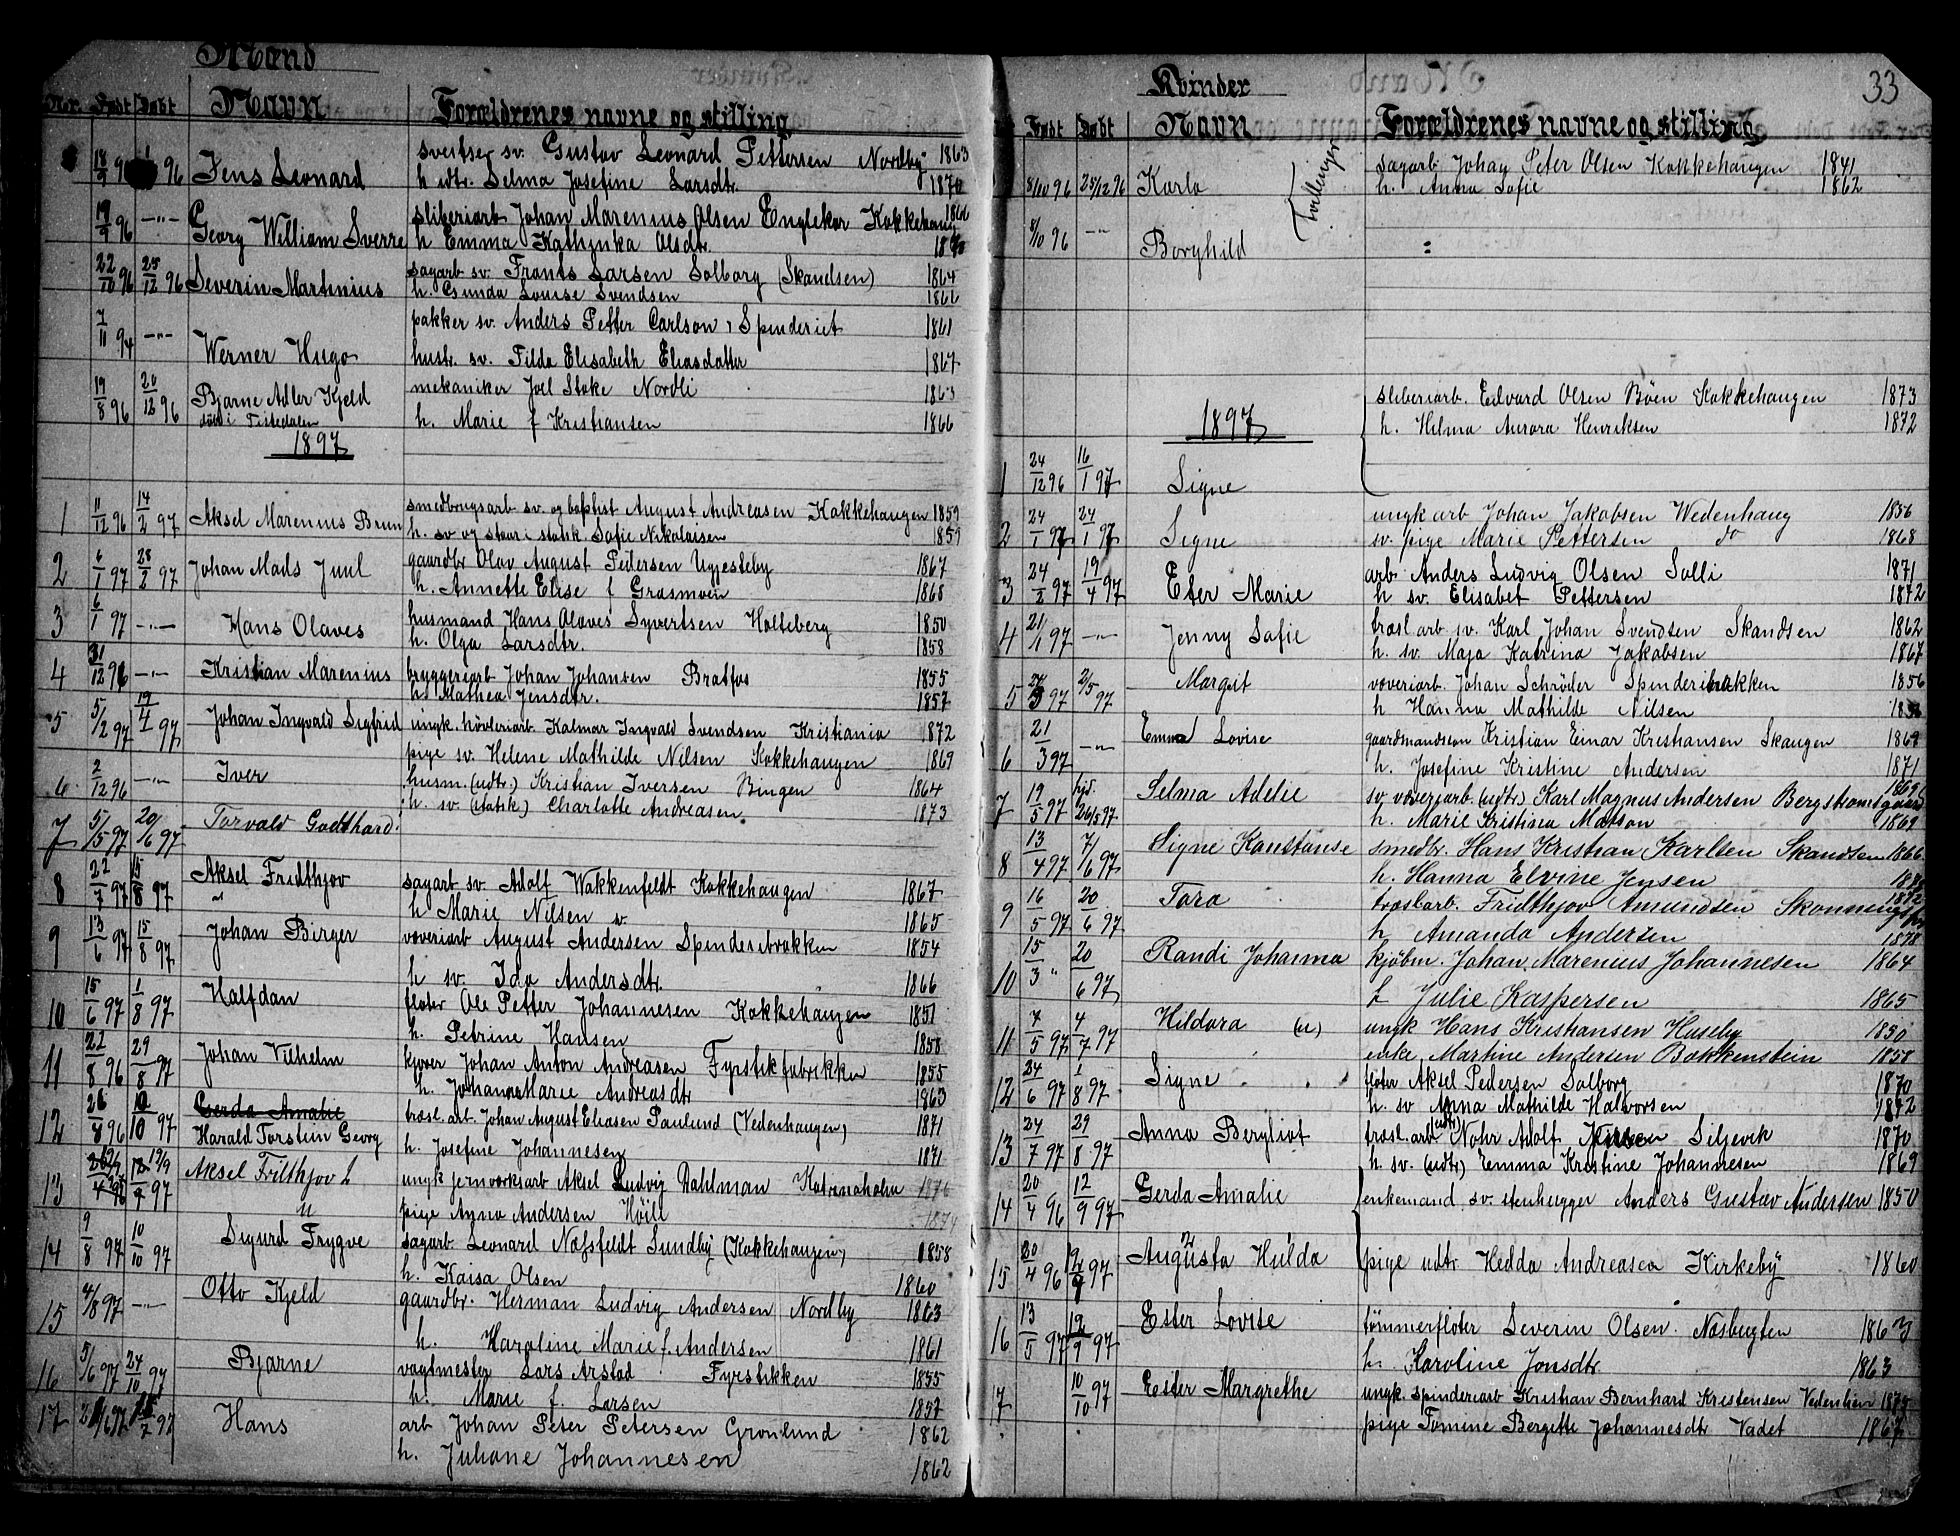 Mænd
Nr. Født Døbt Navn Forældrenes navne og stilling
18/9 96 96 Jens Leonard sv. Gustav Leonard Pettersen Nordby 1863
h. udtr. Selma Josefine Larsdtr. 1870
19/9 96 —"— Georg William Sverre sliberiarb Johan Marenius Olsen Englekor Kokkehaug
h Emma Kathinka Olsdtr.
22/10 96 25/12 96 Severin Martinius sagarb sv. Frants Larsen Solborg (Skandsen) 1864
h. Gunda Louise Svendsen 1866
7/11 94 —"— Werner Hugo pakker sv. Anders Petter Carlson, Spinderiet 1861
hustr. sv. Tilda Elisabeth Eliasdatter 1867
19/8 96 20/12 96 Bjarne Adler Kjeld mekaniker Joel Stoke Nordli 1863
døbt i Tistedalen h. Marie f Kristiansen 1866
1897
1 11/12 96 14/2 97 Aksel Marenius Brun smedbrugsarb sv. og baptist August Andreasen Kokkehaugen 1859
h. sv og staar i statsk. Sofie Nikolaisen 1859
2 6/1 97 28/2 97 Johan Mads Juul gaardbr Olav August Pedersen Ugjesteby 1867
h. Annette Elise f Grasmoen 1868
3 6/1 97 —"— Hans Olaves husmand Hans Olaves Syvertsen Holteberg 1850
h. Olga Larsdtr. 1858
4 31/12 96 —"— Kristian Marenius bryggeriarb Johan Johansen Bratfos 1855
h. Mathea Jensdtr. 1857
5 5/2 97 19/4 97 Johan Ingvald Sigfrid ungk. høvleriarb. Kalmar Ingvald Svendsen Kristiania 1872
pige sv. Helene Mathilde Nilsen Kokkehaugen 1869
6 2/12 96 —"— Iver husm. (udtr.) Kristian Iversen Bingen 1864
h. sv. (statsk) Charlotte Andreasen 1873
7 5/5 97 20/6 97 Torvald Godthard
8 22/7 97 15/8 97 Aksel Fridthjov sagarb sv. Adolf Wakkenfeldt Kokkehaugen 1867
" h Marie Nilsen sv. 1865
9 13/6 97 15/8 97 Johan Birger væveriarb August Andersen Spinderibrakken 1854
h sv. Ida Andersdtr. 1866
10 15/6 97 1/8 97 Halfdan fløter Ole Petter Johannesen Kokkehaugen 1851
h. Petrine Hansen 1858
11 22/8 96 29/8 97 Johan Vilhelm kjører Johan Anton Andreasen Fyrstikfabrikken 1855
h. Johanne Marie Andreasdtr 1863
12 26/8 96 10/10 97 Gerda Amalie
Harald Torstein Georg træsl. arb. Johan August Eliasen Paulund (Vedenhaugen) 1871
h. Josefine Johannesen 1871
13 12/9 97 Aksel Fridthjov u ungk jernværksarb Aksel Ludvig Dahlman Katrineholm 1876
pige Anna Andersen Høili 1874
14 9/8 97 10/10 97 Sigurd Trygve sagarb. Leonard Næssfeldt Sundby (Kokkehaugen) 1858
h. Kaisa Olsen 1860
15 4/8 97 —"— Otto Kjeld gaardbr. Herman Ludvig Andersen Nordby 1863
h. Karoline Marie f. Andersen 1861
16 5/6 97 24/10 97 Bjarne vagtmester Lars Arstad Fyrstikken 1855
h. Marie f. Larsen 1857
17 97 97 Hans arb Johan Peter Petersen Grønlund 1862
h. Juliane Johannesen 1862
33
Kvinder
Født Døbt Navn Forældrenes navne og stilling
8/10 96 25/12 96 Karla Tvillinger sagarb Johan Peter Olsen Kokkehaugen 1841
h. Anna Sofie 1862
8/10 96 —"— Borghild =
sliberiarb. Edvard Olsen Bøen Kokkehaugen 1873
1897
h. Hilma Aurora Henriksen 1872
1 24/12 96 16/1 97 Signe
2 24/1 97 24/1 97 Signe ungk arb Johan Jakobsen Wedenhaug 1856
sv. pige Marie Pettersen do 1868
3 24/2 97 19/4 97 Ester Marie arb Anders Ludvig Olsen Solli 1871
h sv. Elisabet Pettersen 1872
4 21/1 97 —"— Jenny Sofie træsl. arb sv. Karl Johan Svendsen Skandsen 1862
h. sv. Maja Katrina Jakobsen 1867
5 97 2/5 97 Margit væveriarb. Johan Schrøder Spinderibrakken 1856
h Hanna Mathilde Nilsen
6 21/3 97 —"— Emma Lovise gaardmandssøn Kristian Einar Kristiansen Skaugen 1869
h. Josefine Kristine Andersen 1871
7 19/5 97 hjd. 26/5 97 Selma Adelie sv. væveriarb (udtr.) Karl Magnus Andersen Bergstrømsgaard
h. Marie Kristina Matson 1869
8 13/4 97 7/6 97 Signe Konstanse smedbr. Hans Kristian Karlsen Skandsen 1866
h. Hanna Elvine Jensen
9 16/5 97 20/6 97 Tora træslarb. Fridthjov Amundsen 1872
h Amanda Andersen 1878
10 15/3 " 20/6 97 Randi Johanna kjøbm. Johan Marenius Johannesen 1864
f Julie Kaspersen 1865
11 7/5 97 4/7 97 Hildora (u) ungk Hans Kristiansen Huseby 1850
enke Martine Andersen Bakkenstein 1858
12 24/6 97 1/8 97 Signe fløter Aksel Pedersen Solborg 1870
h. sv Anna Mathilde Halvorsen 1872
13 24/7 97 29/8 97 Anna Bergliot træsl. arb (udtr) Nohr Adolf Siljevik 1870
h. sv. (udtr) Emma Kristine Johannesen 1869
14 20/4 96 12/9 97 Gerda Amalie enkemand sv. stenhugger Anders Gustav Andersen 1850
15 20/4 96 12/9 97 Augusta Hulda pige udtr Hedda Andreasen Kirkeby 1860
16 13/5 97 12/9 97 Ester Lovise tømmerfløter Severin Olsen Næsbugten 1863
h. Karoline Jonsdtr. 1863
17 10/10 97 Ester Margrethe ungk. spinderiarb Kristian Bernhard Kristensen Vedenlien 1875
pige Tomine Bergette Johannesdtr Vadet 1867